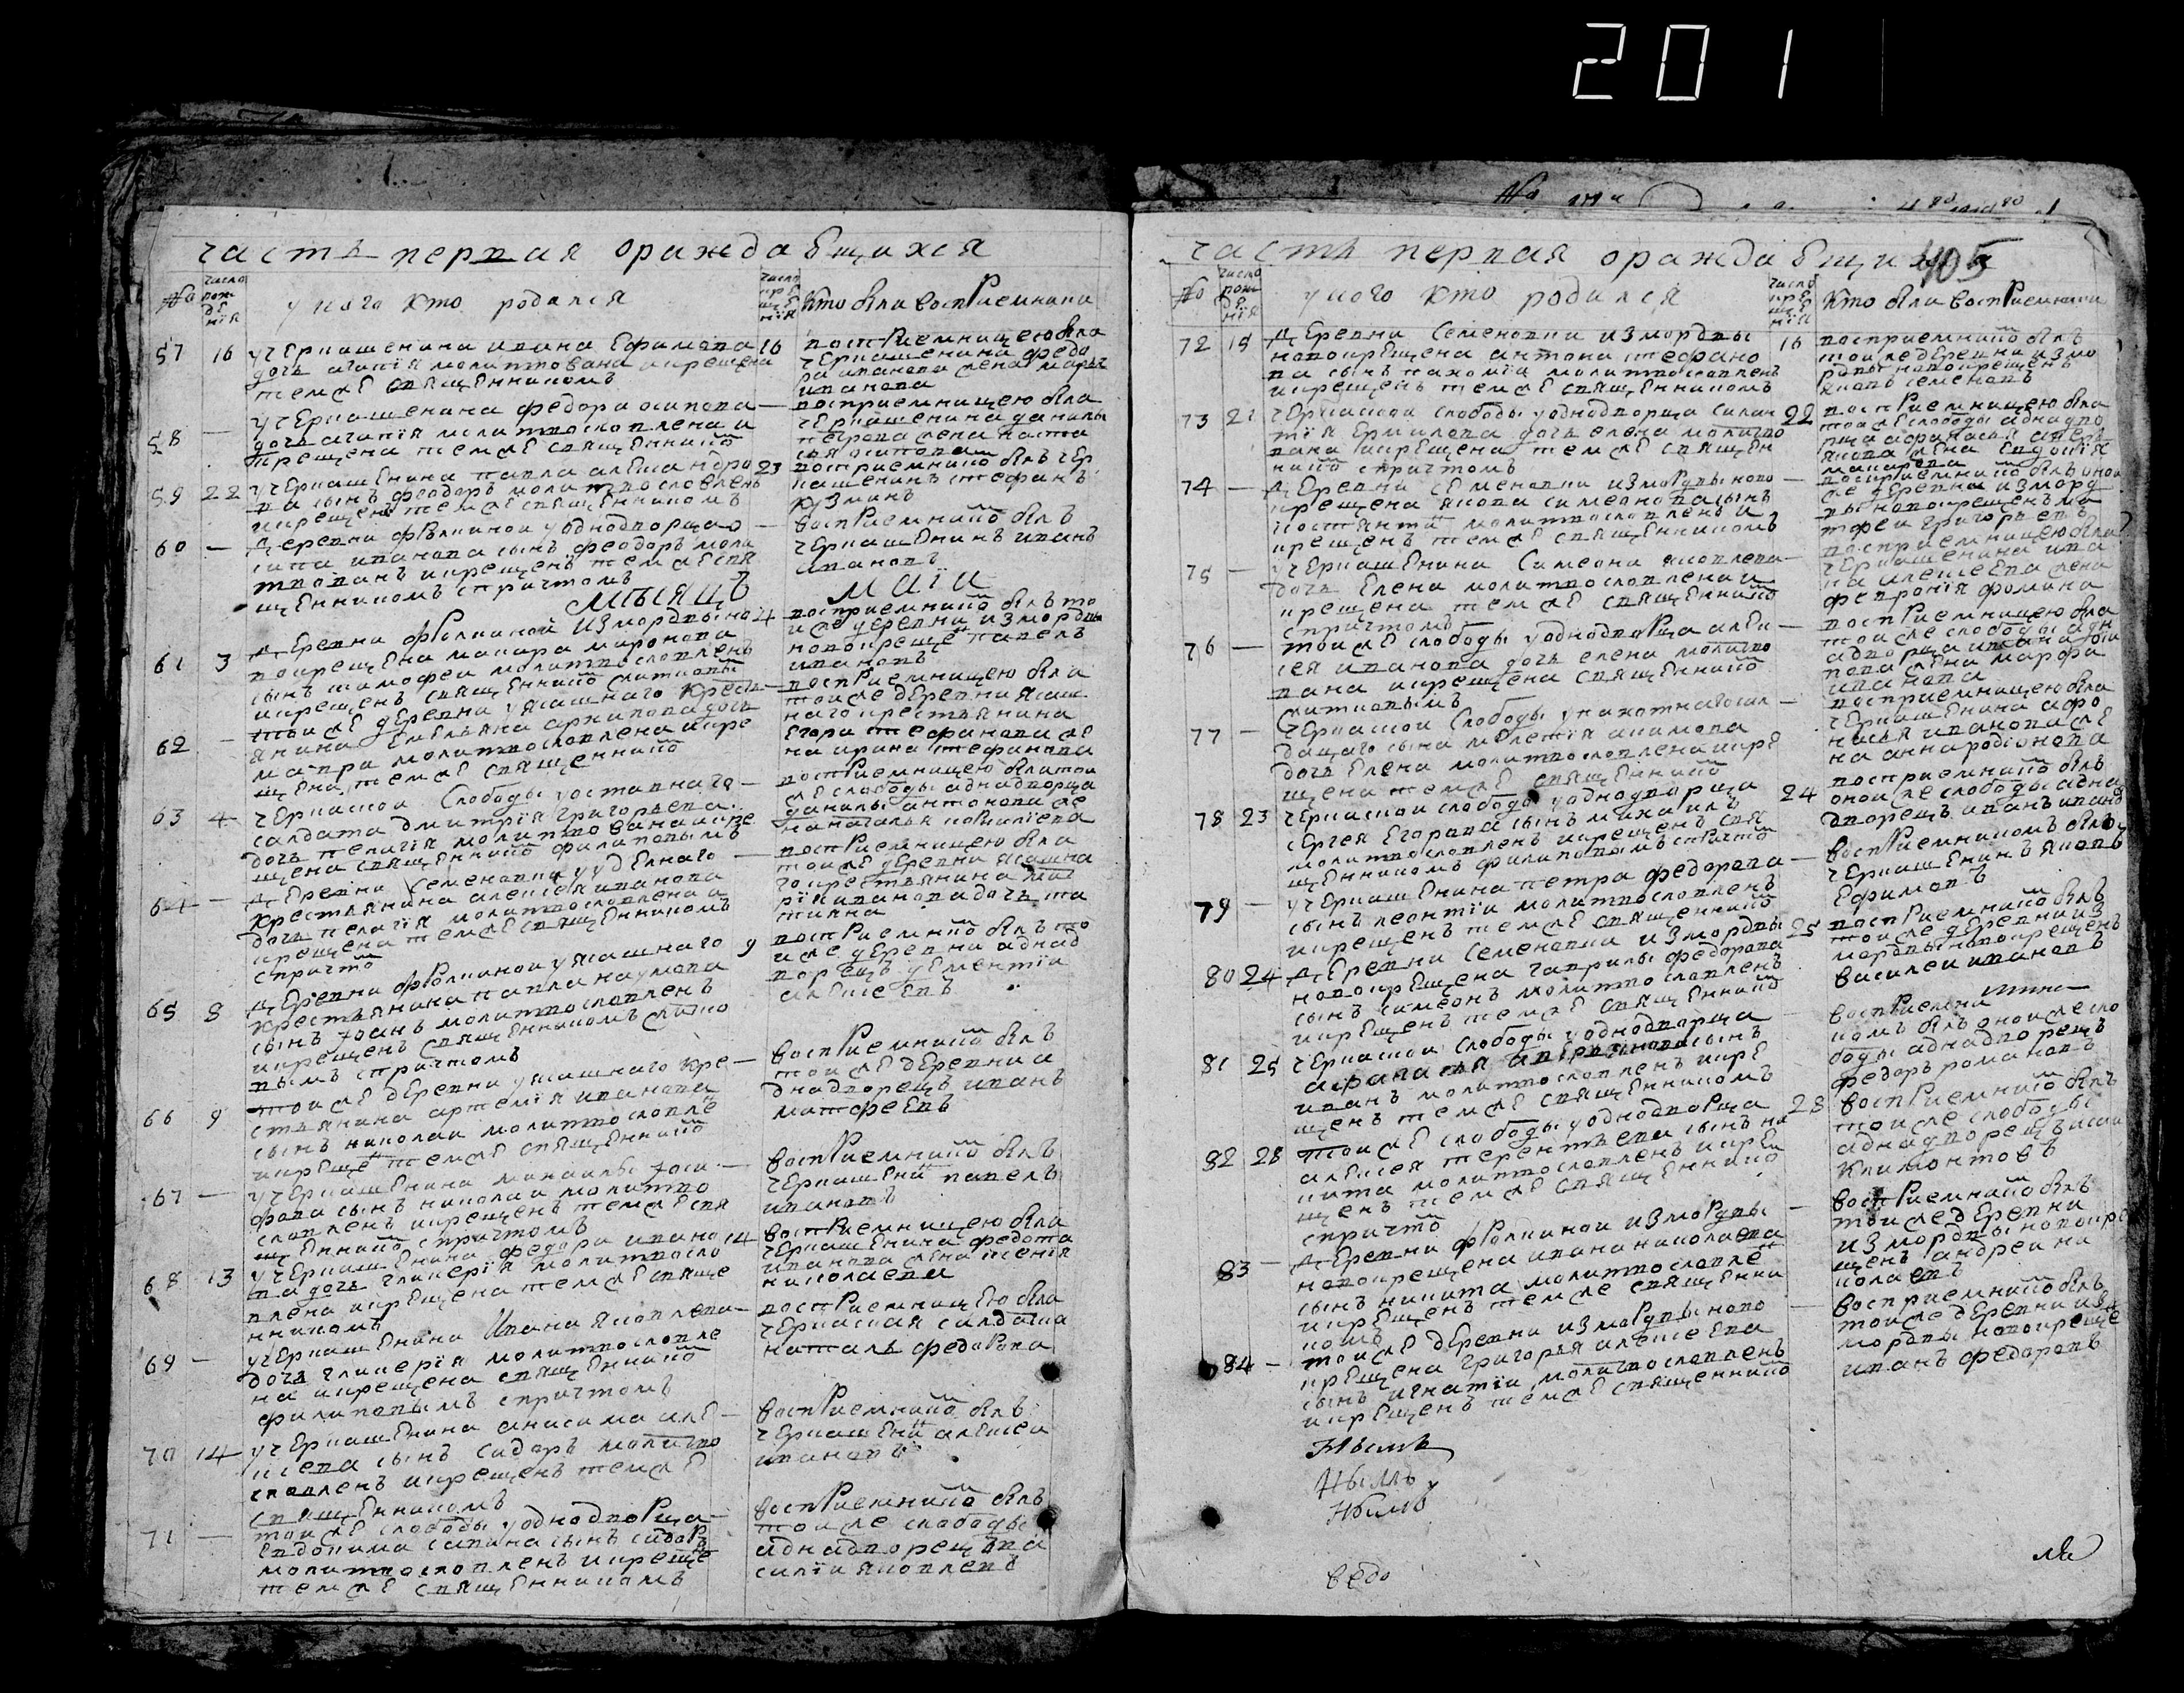 201
часть первая оражда ющихся
№
число рож дЕ нїя
у ково кто родился
число крЕ щЕ нїя
Кто был восприемники
57 16 учЕркашенина ивана Ефимова 16
дочь агапїя молитвована икрещена
темже священникомъ
восприемницею была
чЕркашенина федо
ра иванова жена марья
иванова
58 — учЕркашенина федора осипова —
дочь агапїя молитвословлена и
крещена темжЕ священнико
восприемницею была
чЕркашенина данилы
петрова жена наста
сия осипова
59 22 учЕркашЕнина павла алЕксандро 23
ва сынъ феодоръ молитвословленъ
икрещенъ темжЕ священникомъ
восприемнико былъ чЕр
кашенинъ стефанъ
кузминъ
60 — дЕревни фюлкиной уоднодворца о —
сипа иванова сынъ феодоръ моли
твованъ икрещенъ темжЕ свя
щЕнникомъ спричтомъ
восприемнико былъ
чЕркашЕнинъ иванъ
ивановъ
мѣсяцъ маїи
61 3 дЕревни фюлкиной измордвы но 4
вокрещЕна макара миронова
сынъ тимофеи молитвословленъ
икрещенъ священнико
восприемнико былъ то
иже деревни измордвы
новокреще павелъ
ивановъ
62 — тоижЕ дЕревни уясашнаго крест —
янина Емельяна архипова дочь
мавра молитвословлена икре
щЕна темжЕ священнико
восприемницею была
тоиже дЕревни ясаш
наго крестьянина
Егора стефанова же
на ирина стефанова
63 4 чЕркаской Слободы уоставнаго —
салдата дмитрїя григорьева
дочь пелагїя молитвована икре
щена священнико филиповымъ
восприемницею была тои
жЕ слободы аднадворца
данилы антонова же
на наталья
64 — дЕревни Семеновки уудЕлнаго —
крестьянина алексЕя иванова
дочь пелагїя молитвословлена и
крещена темжЕ священникомъ
спричто
восприемницею была
тоижЕ дЕревни ясашна
го крестьянина
иванова дочь та
тияна
65 8 дЕревни фюлкиной уясашнаго 9
крестьянина павла наумова
сынъ Iоанъ молитвословленъ
икрещенъ священникомъ
вымъ спричтомъ
восприемнико былъ то
иже деревни аднад
ворецъ дементїи
алЕксеЕвъ
66 9 тоижЕ дЕревни уясашнаго кре —
стьянина артемїя иванова
сынъ николаи молитвословле
икрещЕ темжЕ священнико
восприемнико былъ
тоижЕ дЕревни а
днадворецъ иванъ
матфеЕвъ
67 — учЕркашЕнина михаилы Iоси —
фова сынъ николаи молитво
словленъ икрещенъ темжЕ свя
щЕннико спричтомъ
восприемнико былъ
чЕркашЕни павелъ
ивановъ
68 13 учЕркашЕнина федора ивано 14
ва дочь гликерїя молитвосло
влена икрещЕна темжЕ свяще
нникомъ
восприемницею была
чЕркашЕнина федота
иванова жена ксенїя
николаева
69 — учЕркашЕнина Ивана яковлева —
дочь гликерїя молитвословле
на икрещена священнико
филиповымъ спричтомъ
восприемницЕю была
чЕркаская салдатка
наталья федорова
70 14 учЕркашЕнина анисима алЕ —
ксева сынъ сидоръ молитво
словленъ икрещенъ темжЕ
священникомъ
восприемнико былъ
чЕркашЕни алЕксеи
ивановъ
71 — тоижЕ слободы уоднодворца —
Евдокима савина сынъ сидоръ
молитвословленъ икреще
темжЕ священникомъ
восприемнико былъ
тоиже слободы
аднадворецъ ва
силїи яковлевъ
405
часть первая оражда ющихся
№
число рож дЕ нїя
у ково кто родился
число крЕ щЕ нїя
Кто был восприемники
72 15 дЕревни Семеновки измордвы 16
новокрещена антона стефано
ва сынъ пахомїи молитвословленъ
икрещенъ темжЕ священникомъ
восприемнико былъ
тоиже дЕревни измо
рдвы новокрещенъ
яковъ семеновъ
73 21 чЕркаской слободы уоднодворца 22
Ермилова дочь елена молитво
вана икрещЕна темжЕ священ
нико спричтомъ
восприемницею была
тоижЕ слободы аднадво
рца афанасья
жена Евдокїя
макарова
74 — дЕревни сЕменовки измордвы ново —
крещена якова симеонова сынъ
костянти молитвословленъ и
крещенъ темжЕ священникомъ
восприемнико былъ онои
же дЕревни измордв
вы новокрещенъ ма
тфеи григорьевъ
75 — учЕркашЕнина Симеона яковлева —
дочь Елена молитвословлена и
крещена темжЕ священнико
спричтомъ
восприемницею была
чЕркашенина ива
на алексеева жена
феврониїя фомина
76 — тоижЕ слободы уоднодворца алЕк —
сея иванова дочь елена молитво
вана икрещена священнико
восприемницею была
тоиже слободы адн
адворца
жена марфа
иванова
77 — чЕркаской Слободы
сына мелетїя акимова
дочь Елена молитвословлена икрЕ
щена темжЕ священнико
восприемницею была
чЕркашЕнина афо
насья иванова жЕ
на анна родїонова
78 23 чЕркаской слободы уоднодворца 24
сЕргея Егорова сынъ михаилъ
молитвословленъ икрещенъ свя
щЕнникомъ филиповымъ спричто
восприемнико былъ
онои же слободы однад
дворецъ иванъ ивано
79 — учЕркашЕнина петра федорова —
сынъ леонтїи молитвословленъ
икрещенъ темжЕ священнико
восприемникомъ былъ
чЕркашЕнинъ яковъ
Ефимовъ
80 24 дЕревни Семеновки измордвы 25
новокрещена гаврилы федорова
сынъ симеонъ молитвословленъ
икрещенъ темжЕ священнико
восприемнико былъ
тоиже дЕревни из
мордвы новокрещенъ
василеи ивановъ
81 25 чЕркаской Слободы уоднодворца
афанасья сынъ
иванъ молитвословленъ икрЕ
щенъ темжЕ священникомъ
восприемни
комъ былъ оноиже сло
боды аднадворецъ
федоръ романовъ
82 28 тоижЕ слободы уоднодворца 28
алексея терентьева сынъ ни
кита молитвословленъ икрЕ
щенъ темжЕ священнико
спричто
восприемнико былъ
тоиже слободы
аднадворецъ
климонтовъ
83 — дЕревни фюлкиной измордвы —
новокрещена ивана николаева
сынъ никита молитвословле
икрещенъ темже священни
комъ
восприемнико былъ
тоиже дЕревни
измордвы новокре
щенъ андреи ни
колаевъ
84 — тоижЕ дЕревни измордвы ново —
крещена григорья алексеЕва
сынъ игнатїи молитвословленъ
икрещенъ темжЕ священнико
восприемнико былъ
тоиже дЕревни из
мордвы новокреще
иванъ федоровъ
Нымъ
Нымъ
Нымъ
ведо